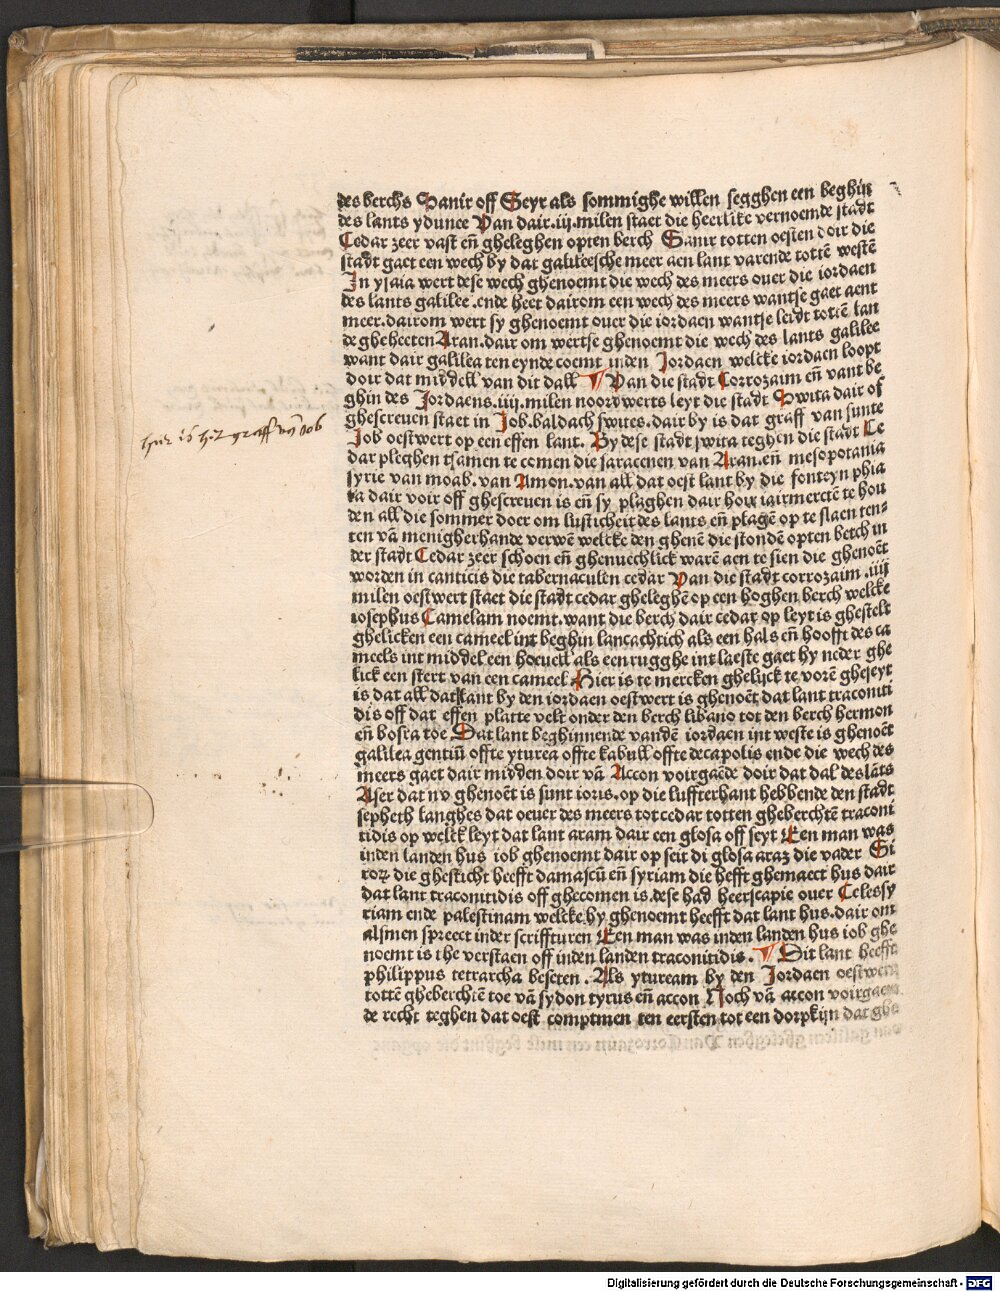 des berchs Sanir off Seyr als sommighe willen segghen een beghin
des lants ydunee Van dair .iij. milen staet die heerlike vernoemde stadt
Cedar zeer vast eñ gheleghen opten berch Sanir totten oesten doir die
stadt gaet een wech by dat galileesche meer aen lant varende tottē westē
In ysaia wert dese wech ghenoemt die wech des meers ouer die iordaen
des lants galilee .ende heet dairom een wech des meers wantse gaet aent
meer. dairom wert sy ghenoemt ouer die iordaen wantse leidt tottē lan
de gheheeten Aran. dair om wertse ghenoemt die wech des lants galilee
want dair galilea ten eynde coemt inden Jordaen welcke iordaen loopt
doir dat middell van dit dall ¶ Van die stadt Corrozaim eñ vant be
ghin des Jordaens .iiij. milen noordwerts leyt die stadt Swita dair of
ghescreuen staet in Job. baldach swites. dair by is dat graff van sunte
Job oestwert op een effen lant. By dese stadt swita teghen die stadt Ce
dar pleghen tsamen te comen die saracenen van Aran. eñ mesopotania
syrie van moab. van Amon. van all dat oest lant by die fonteyn phia
la dair voir off ghescreuen is eñ sy plaghen dair hoir iairmercte te hou
den all die sommer doer om lusticheit des lants eñ plagē op te slaen ten-
ten vā menigherhande verwē welcke den ghenē die stondē opten berch in
der stadt Cedar zeer schoen eñ ghenuechlick warē aen te sien die ghenoēt
worden in canticis die tabernaculen cedar Van die stadt corrozaim .iiij
milen oestwert staet die stadt cedar gheleghē op een hoghen berch welcke
iosephus Camelam noemt. want die berch dair cedar op leyt is ghestelt
ghelicken een cameel int beghin lancachtich als een hals eñ hoofft des ca
meels int middel een hoeuell als een rugghe int laeste gaet hy neder ghe
lick een stert van een cameel Hier is te mercken ghelijck te vorē gheseyt
is dat all dat lant by den iordaen oestwert is ghenoēt dat lant traconiti
dis off dat effen platte velt onder den berch libano tot den berch hermon
eñ bosra toe Dat lant beghinnende vandē iordaen int weste is ghenoēt
galilea gentiū offte yturea offte kabull offte decapolis ende die wech des
meers gaet dair midden doir vā Accon voirgaēde doir dat dal des lāts
Aser dat nv ghenoēt is sunt ioris. op die luffterhant hebbende den stadt
sepheth langhes dat oeuer des meers tot cedar totten gheberchtē traconi
tidis op welck leyt dat lant aram dair een glosa off seyt Een man was
inden landen hus iob ghenoemt dair op seit di glosa araz die vader Si
roꝝ die ghesticht heefft damascū eñ syriam die hefft ghemaect hus dair
dat lant traconitidis off ghecomen is. dese had heerscapie ouer Celessy
riam ende palestinam welcke hy ghenoemt heefft dat lant hus. dair om
alsmen spreect inder scriffturen Een man was inden landen hus iob ghe
noemt is the verstaen off inden landen traconitidis. ¶ Dit lant heefft
philippus tetrarcha beseten . Als ytuream by den Jordaen oestwert
tottē gheberchtē toe vā sydon tyrus eñ accon Noch vā accon voirgaen
de recht teghen dat oest comptmen ten eersten tot een dorpkijn dat ghe